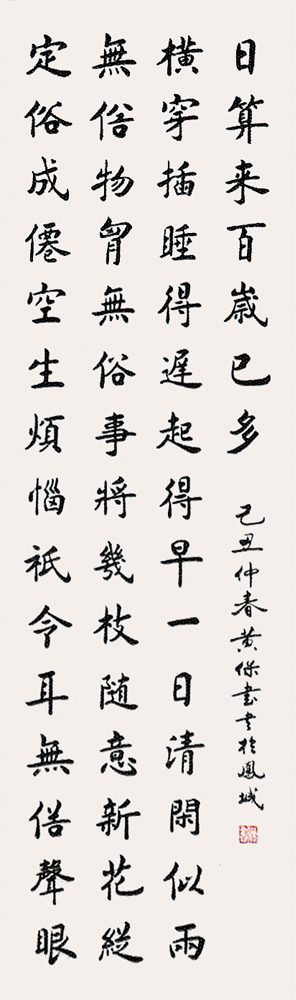 定俗成僊空生煩惱祇令耳無俗聲眼
無俗物胷無俗事將幾枝随意新花縱
橫穿插睡得遲起得早一日清閑似兩
日算来百歲已多
己丑仲春黄保書书於鳳城